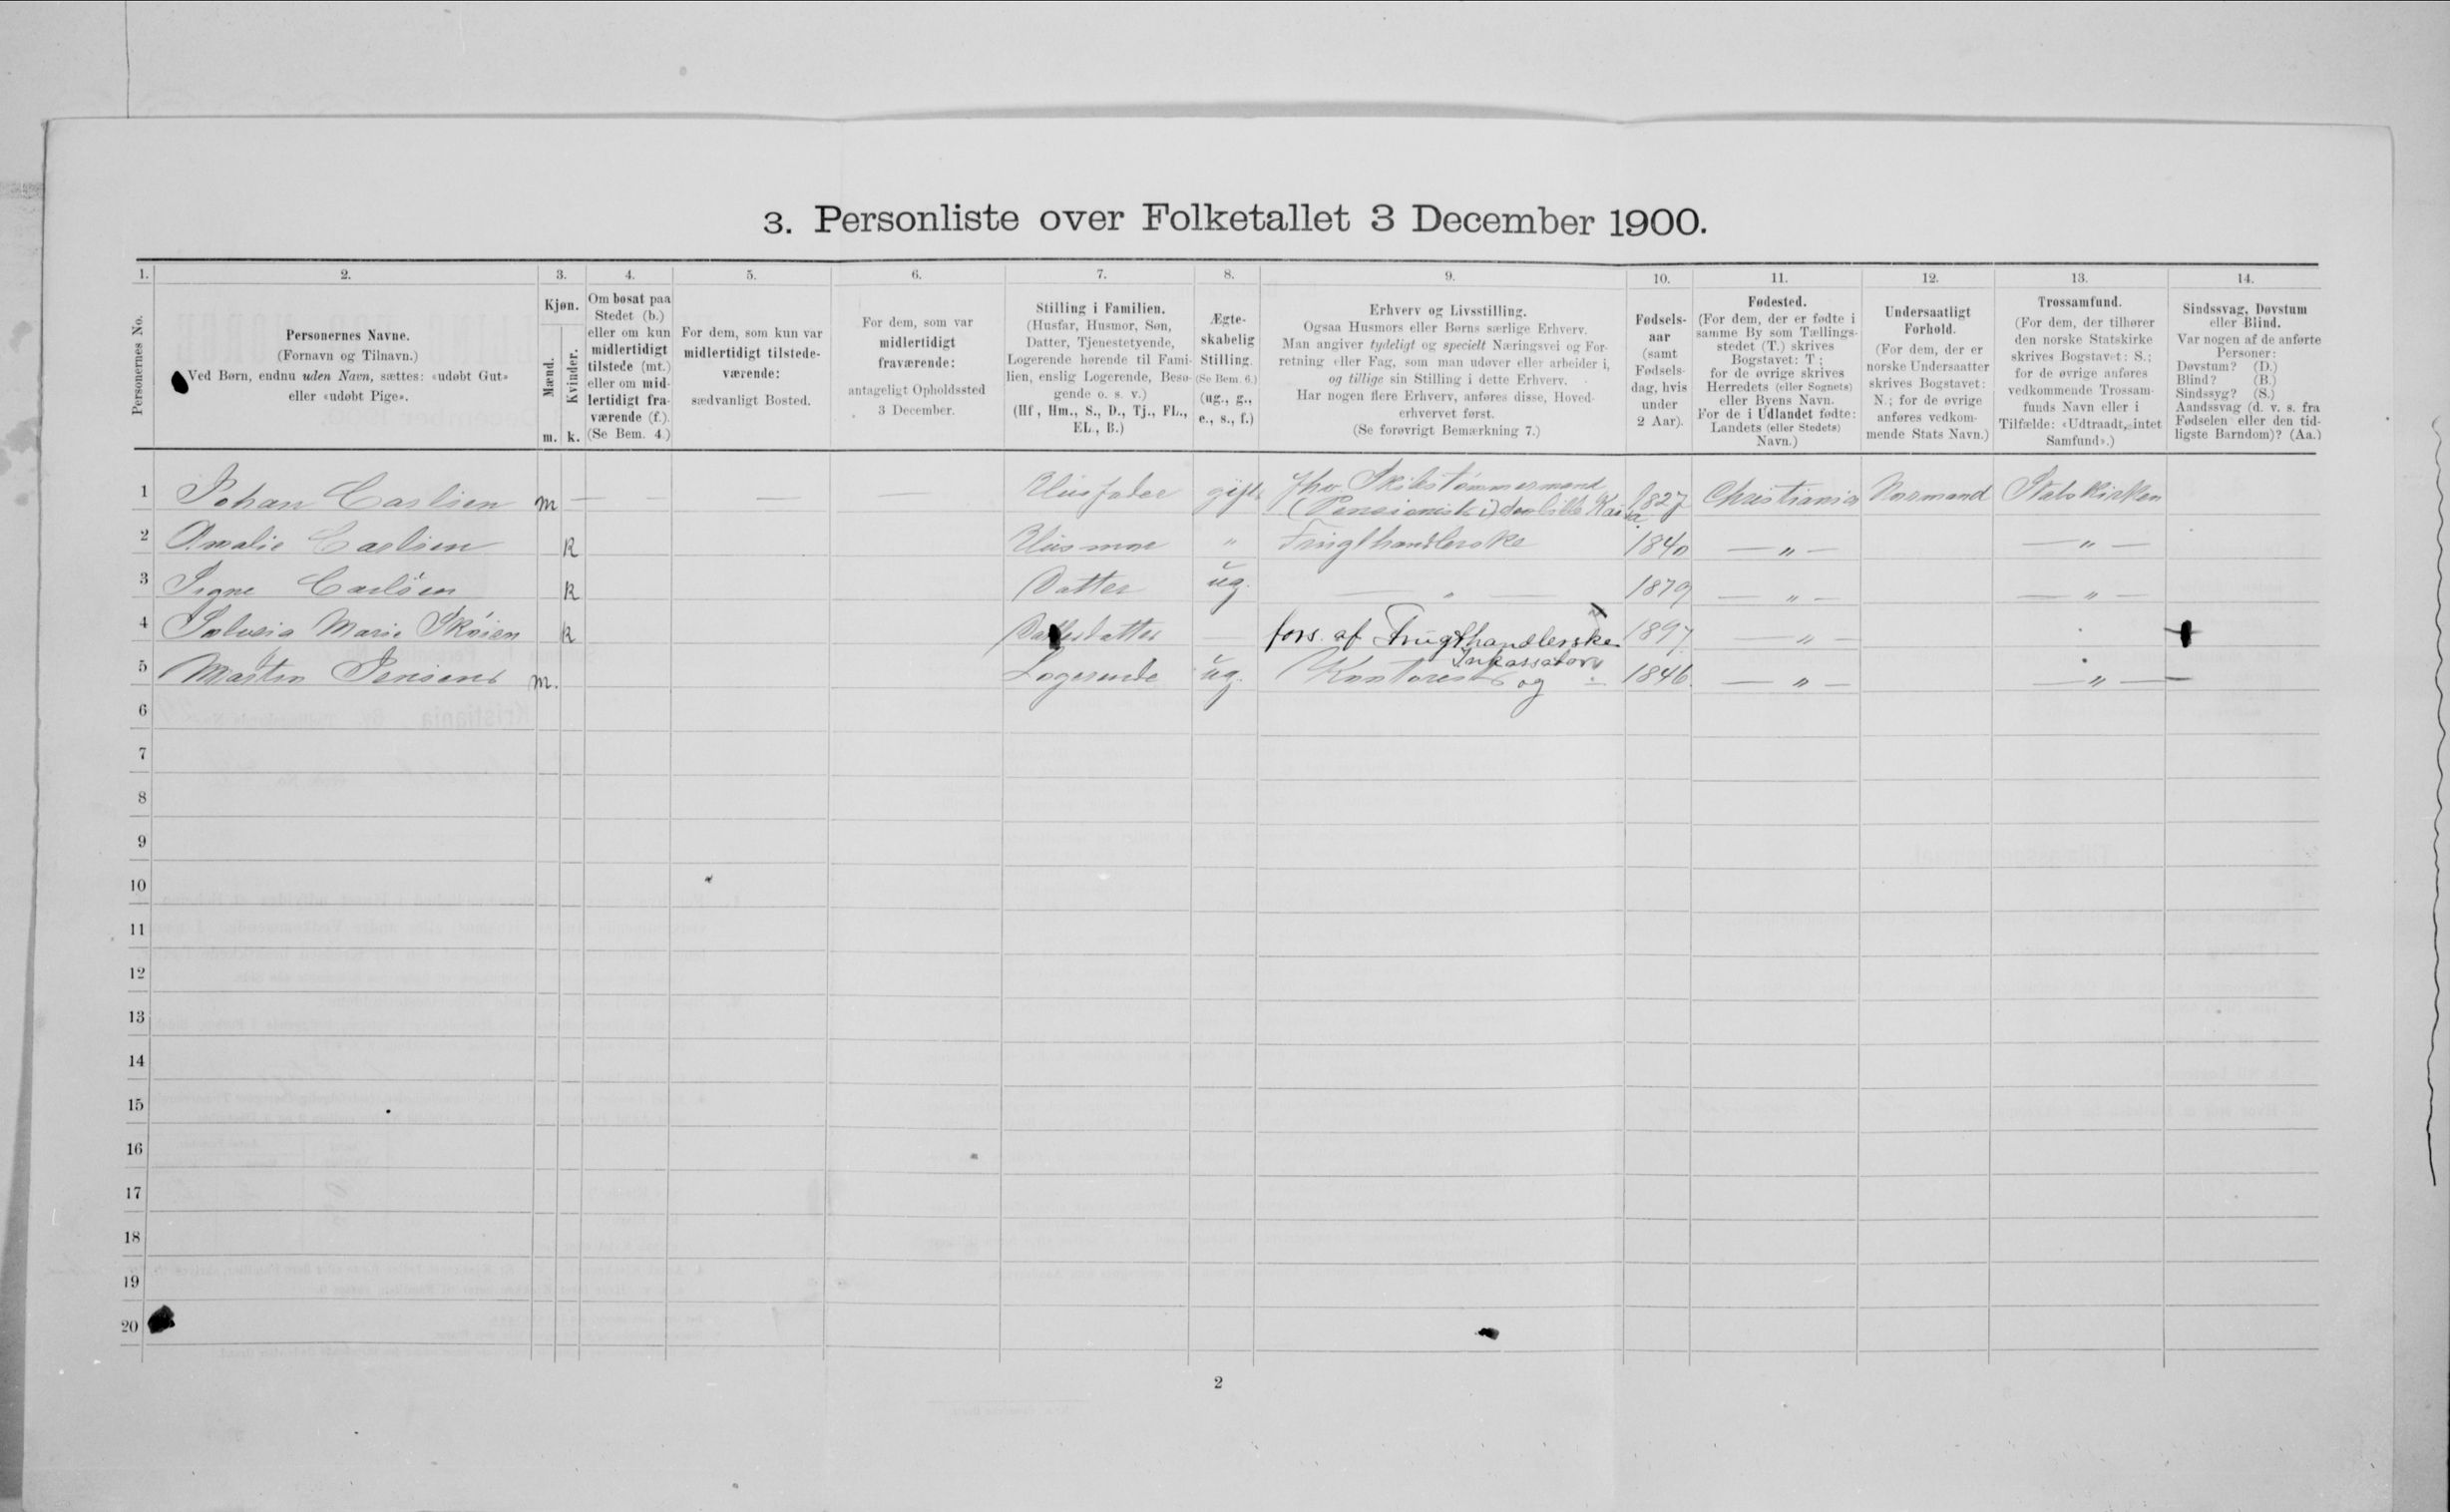 3. Personliste over Folketallet 3 December 1900.
1. 2. 3. 4. 5. 6. 7. 8. 9. 10. 11. 12. 13. 14.
Personernes No.
Personernes Navne.
(Fornavn og Tilnavn.)
Ved Børn, endnu uden Navn, sættes: «udøbt Gut»
eller «udøbt Pige».
Kjøn.
Mænd.
Kvinder.
m. k.
Om bosat paa
Stedet (b.)
eller om kun
midlertidigt
tilstede (mt.)
eller om mid-
lertidigt fra-
værende (f.).
(Se Bem. 4.)
For dem, som kun var
midlertidigt tilstede-
værende:
sædvanligt Bosted.
For dem, som var
midlertidigt
fraværende:
antageligt Opholdssted
3 December.
Stilling i Familien.
(Husfar, Husmor, Søn,
Datter, Tjenestetyende,
Logerende hørende til Fami-
lien, enslig Logerende, Besø-
gende o. s. v.)
(Hf., Hm., S., D., Tj., FL.,
EL., B.)
Ægte-
skabelig
Stilling.
(Se Bem. 6.)
(ug., g.,
e., s., f.)
Erhverv og Livsstilling.
Ogsaa Husmors eller Børns særlige Erhverv.
Man angiver tydeligt og specielt Næringsvei og For-
retning eller Fag, som man udøver eller arbeider i,
og tillige sin Stilling i dette Erhverv.
Har nogen flere Erhverv, anføres disse, Hoved-
erhvervet først.
(Se forøvrigt Bemærkning 7.)
Fødsels-
aar
(samt
Fødsels-
dag, hvis
under
2 Aar).
Fødested.
(For dem, der er fødte i
samme By som Tællings-
stedet (T.) skrives
Bogstavet: T;
for de øvrige skrives
Herredets (eller Sognets)
eller Byens Navn.
For de i Udlandet fødte:
Landets (eller Stedets)
Navn.)
Undersaatligt
Forhold.
(For dem, der er
norske Undersaatter
skrives Bogstavet:
N.; for de øvrige
anføres vedkom-
mende Stats Navn.)
Trossamfund.
(For dem, der tilhører
den norske Statskirke
skrives Bogstavet: S.;
for de øvrige anføres
vedkommende Trossam-
funds Navn eller i
Tilfælde: «Udtraadt, intet
Samfund».)
Sindssvag, Døvstum
eller Blind.
Var nogen af de anførte
Personer:
Døvstum? (D.)
Blind? (B.)
Sindssyg? (S.)
Aandssvag (d. v. s. fra
Fødselen eller den tid-
ligste Barndom)? (Aa.)
1 Johan Carlsen m — — — — Husfader gift fhv. Skibstømmermand 1827 Christiania Normand Statskirken
(Pensionist i)
2 Amalie Carlsen k Husmor " Frugthandlerske 1840 — " — — " —
3 Signe Carlsen k Datter ug. — " — 1879 — " — — " —
4 Marie Skøien k Datterdatter fors. af Frugthandlerske 1897 — " —
5 Martin Jensen m. Logerende ug. Kontorist og Inkassator 1846. — " — — " —
6
7
8
9
10
11
12
13
14
15
16
17
18
19
20
2